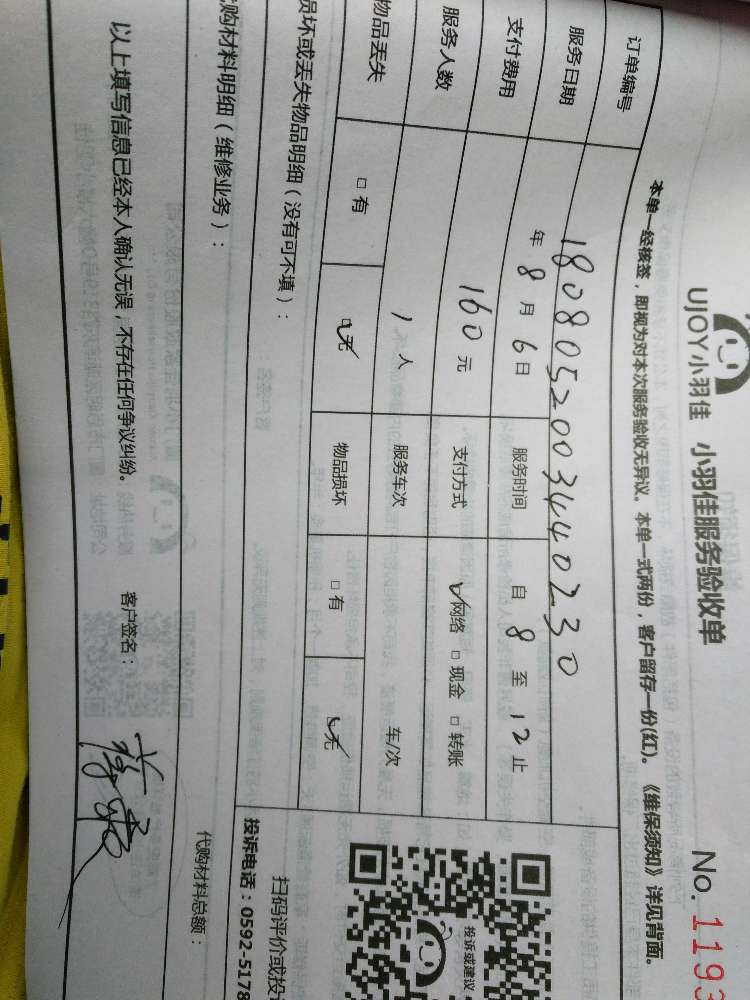 UJOY小羽佳 小羽佳服务验收单 No. 1193
本单一经核签，即视为对本次服务验收无异议。本单一式两份，客户留存一份(红)。《维保须知》详见背面。
订单编号 1808052003440230
服务日期 年 8 月 6 日 服务时间 自 8 至 12 止
支付费用 160 元 支付方式 网络 □ 现金 □ 转账
服务人数 1 人 服务车次 车/次
物品丢失 □ 有 无 物品损坏 □ 有 无
损坏或丢失物品明细（没有可不填）：
代购材料明细（维修业务）：
代购材料总额：
以上填写信息已经本人确认无误，不存在任何争议纠纷。 客户签名：
投诉或建议
扫码评价或投
投诉电话：0592-5178